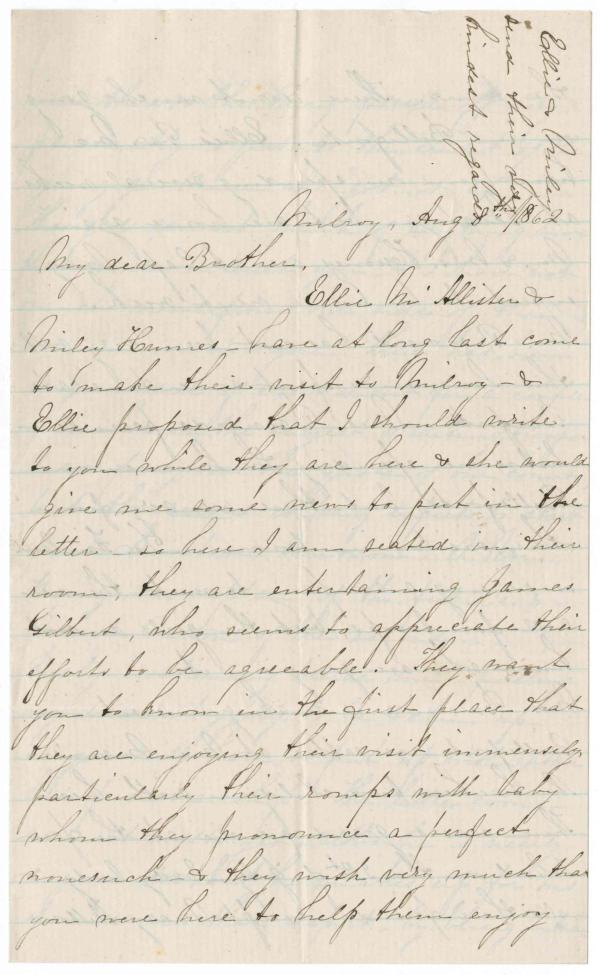 Ellie & Miley
send their
kindest regards
Milroy, Aug 8th/1862
My dear Brother,
Ellie McAllister &
Miley Humes have at long last come
to make their visit to Milroy - &
Ellie proposed that I should write
to you while they are here & she would
give me some news to put in the
letter - so here I am seated in their
room, they are entertaining James
Gilbert, who seems to appreciate their
efforts to be agreeable. They want
you to know in the first place that
they are enjoying their visit immensely
particularly their romps with baby
whom they pronounce a perfect
nonesuch - & they wish very much that
you were here to help them enjoy